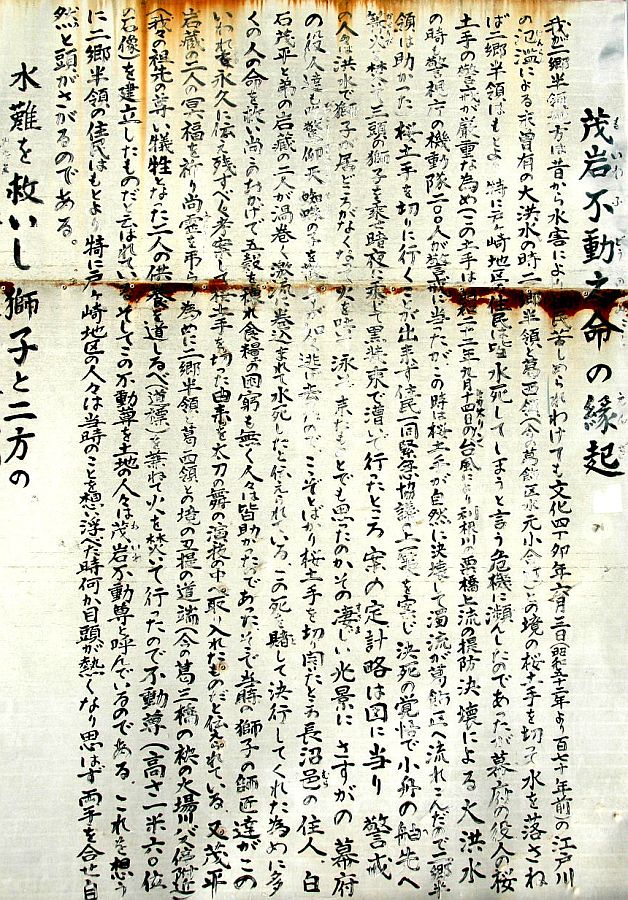 茂岩不動之命の縁起
我が二郷半領地方は昔から水害により住民苦しめられわけても文化四丁卯年六月三日昭和五十二年より百七十年前の江戸川
の氾濫による未曾有の大洪水の時二郷半領と葛西領(今の葛飾区水元小合町)との境の桜土手を切って水を落さね
ば二郷半領はもとより特に戸ヶ崎地区の住民は皆水死してしまうと言う危機に瀕したのであったが幕府の役人の桜
土手の警戒が厳重な為め(この土手は昭和二十二年九月十四日の台風により利根川の栗橋上流の堤防決壊による大洪水
の時も警視庁の機動隊二〇〇人が警戒に当ったがこの時は桜土手が自然に決壊して濁流が葛飾区へ流れこんだので二郷半
領は助かった)桜土手を切りに行くことが出来ず住民一同緊急協議の上一策を案じ決死の覚悟で小船の舳先へ
篝火を焚き三頭の獅子を乗せ暗夜に乗じて黒装束で漕いで行ったところ案の定計略は図に当り警戒
の人々は洪水で獅子が居どころがなくなって火を吐いて泳いで来たものとでも思ったのかその凄じい光景にさすがの幕府
の役人達も驚仰天蜘蛛の子を散すが如く逃げ去ったのでこゝぞとばかり桜土手を切り開いたところ長沼邑の住人白
石茂平と弟の岩蔵の二人が渦巻く激流に巻込まれて水死したと伝えられているこの死を賭して決行してくれた為めに多
くの人の命を救い尚このおかげで五穀も穫れ食糧の困窮も無く人々は皆助かったであったそこで当時の獅子の師匠達がこの
いわれを永久に伝え残すべく考案して桜土手を切った由来を太刀の舞の演技の中へ取り入れたものだと伝えられている又茂平
岩蔵の二人の冥福を祈り尚霊を弔らう為めに二郷半領と葛西領との境の丑提の道端(今の葛三橋の袂の大場川バス停附近)
(我々の祖先の尊い犠牲となった二人の供養を道しるべ(道標)を兼ねて火を焚いて行ったので不動尊(高さ一米六〇位
の石像)を建立したものだと云はれているそしてこの不動尊を土地の人々は茂岩不動尊と呼んでいるのであるこれを想う
に二郷半領の住民はもとより特に戸ヶ崎地区の人々は当時のことを想い浮べた時何か目頭が熱くなり思はず両手を合せ自
然と頭がさがるのである。
水難を救いし獅子と二方の